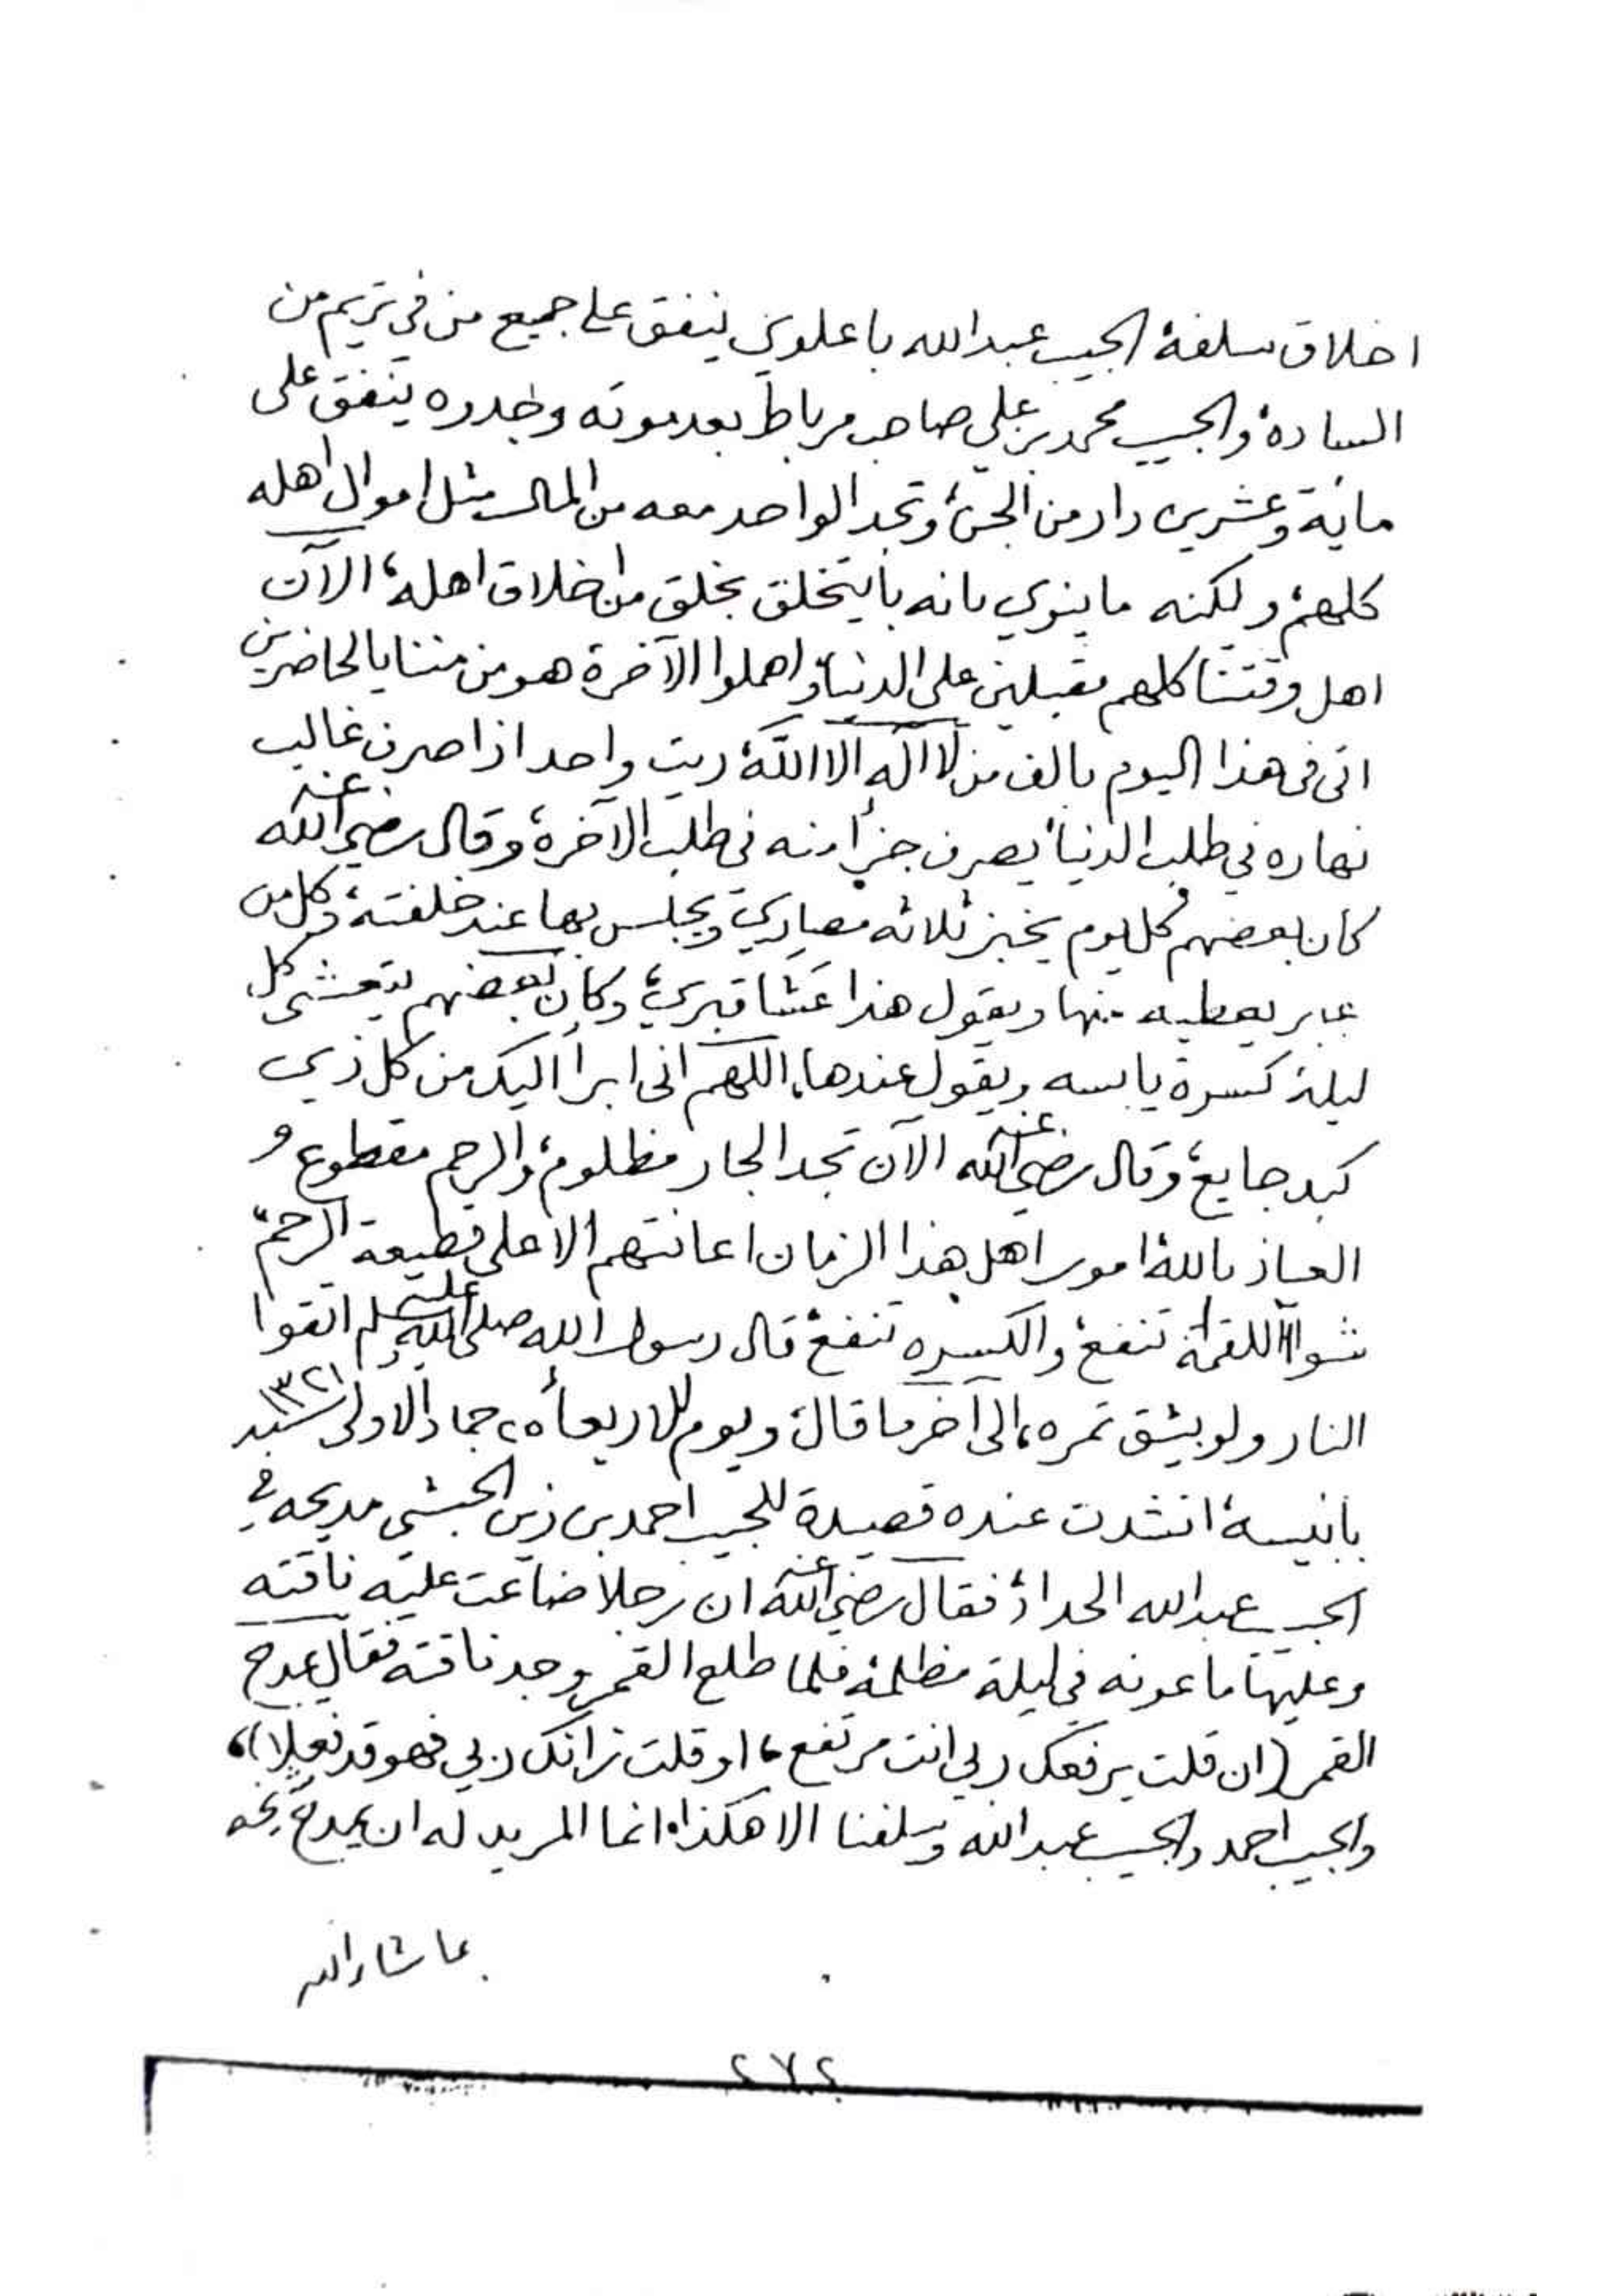 اخلاق سلفهْ الحبيب عبدالله باعلوي ينفق على جميع من في تريم من
السادهْ والحبيب محمد بن علي صاحب مرباط بعد موته وخدوره ينفق على
ماية وعشرين دار من الجنْ وتجد الواحد معه من المال مثل اموال اهله
كلهمْ ولكنه ما ينوي بانه بايتخلق بخلق من اخلاق اهلهْ، الآن
اهل وقتنا كلهم مقبلين على الدنياْ واهملوا الآخرة هو من مننا يالحاضرين
اتى في هذا اليوم بالف من لا اله الا اللهْ ريت واحد اذا صرف غالب
نهاره في طلب الدنياْ يصرف جزأ منه في طلب الآخرهْ، وقال رضي الله عنه
كان بعضهم كل يوم يخبز ثلاثه مصاري ويجلس بها عند خلفتهْ وكل من
عبر يعطيه منها ويقول هذا عَشَا قبريْ، وكان بعضهم يتعشى كل
ليلة كسرة يابسه ويقول عندها، اللهم انى ابرأ اليك من كل ذي
كبد جايعْ، وقال رضي الله عنه الآن تجد الجار مظلومْ والرحم مقطوع و
العياذ باللهْ امور اهل هذا الزمان اعانتهم الا على قطيعة الرحمْ،
شوا اللقمهْ تنفعْ والكسيره تنفعْ قال رسول الله صلى الله عليه وسلم اتقوا
النار ولو بشق تمره، الى آخر ما قالْ ويوم للاربعاء ٢٥ جماد الاولى سنة ١٣٢١
بانيسهْ انشدت عنده قصيدة للحبيب احمد بن زين الحبشي مديحه في
الحبيب عبدالله الحدادْ فقال رضي الله عنه ان رجلا ضاعت عليه ناقته
وعليها ماعونه في ليلة مظلمهْ فلما طلع القمر وجد ناقته فقال يمدح
القمر (ان قلت يرفعك ربي انت مرتفع، او قلت زانك ربي فهو قد فعلا)،
والحبيب احمد والحبيب عبدالله وسلفنا الا هكذاْ انما المريد له ان يمدح شيخه
بما شاء الله
٢٧٢